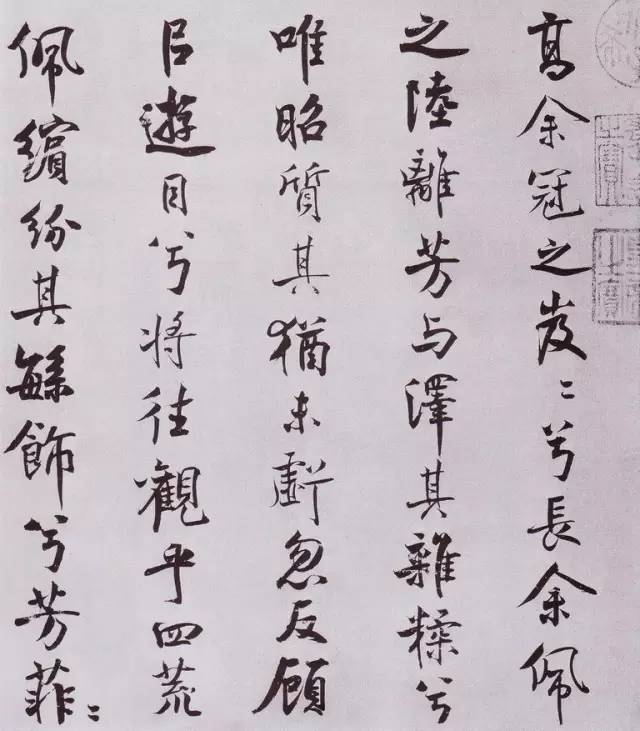 高余冠之岌〻兮長余佩
之陸離芳与澤其雜糅兮
唯昭質其猶未虧忽反顧
㠯遊目兮将往觀乎四荒
佩繽紛其繁飾兮芳菲〻